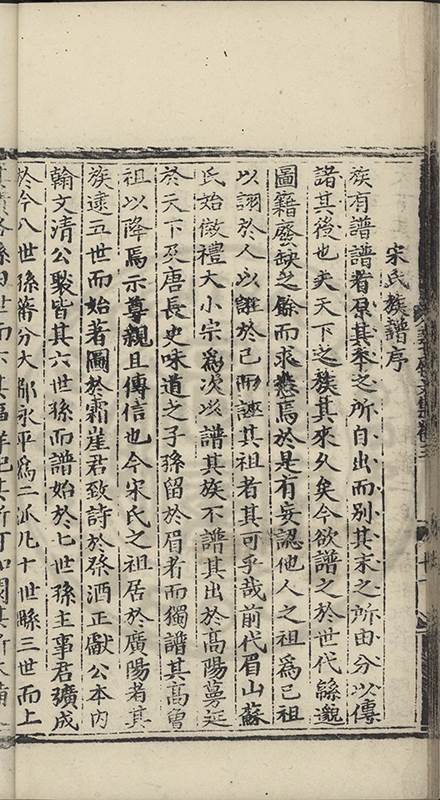 宋氏族譜序
族有譜譜者原其本之所自出而别其末之所由分以傳
諸其後也夫天下之族其來乆矣今欲譜之於世代緜邈
圖籍廢缺之餘而求悉焉於是有妄認他人之祖爲已祖
以詡於人以誑於己而誣其祖者其可乎哉前代眉山蘇
氏始倣禮大小宗爲次以譜其族不譜其出於高陽蔓延
於天下及唐長史味道之子孫留於眉者而獨譜其高曾
祖以降焉示尊親且傳信也今宋氏之祖居於廣陽者其
族逺五世而始著圖於霜崖君致詩於祭酒正獻公本内
翰文清公褧皆其六世孫而譜始於七世孫主事君彍成
於今八世孫蕃分大郍永平爲二派凡十世緜三世而上